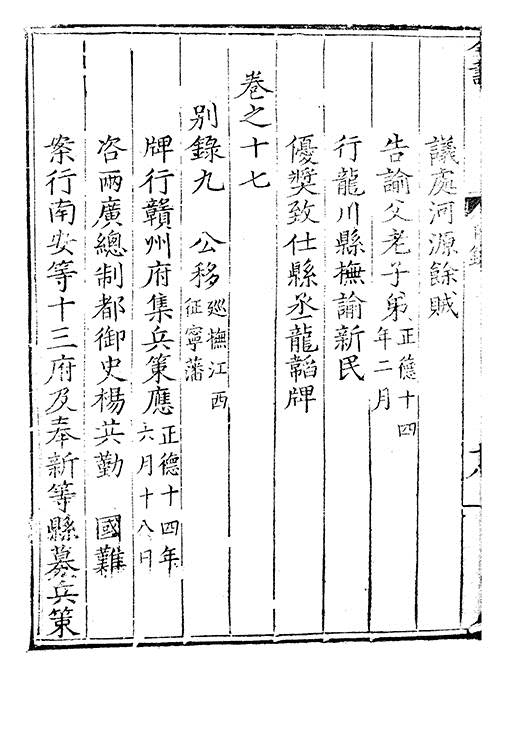 議處河源餘賊
告諭父老子弟正德十四年二月
行龍川縣撫諭新民
優奬致仕縣丞龍韜牌
卷之十七
別錄九　公移廵撫江西征寧藩
牌行贛州府集兵策應正德十四年六月十八日
咨兩廣總制都御史楊共勤　國難
案行南安等十三府及奉新等縣募兵策